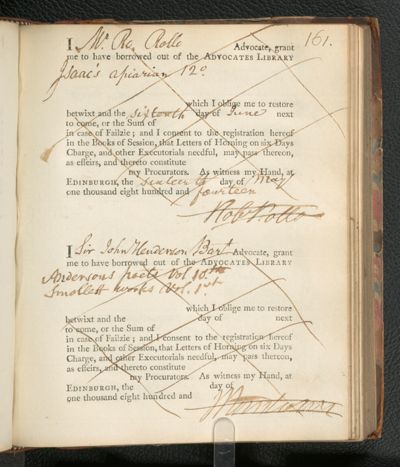 161.
I Mr Ro. Rolle Advocate, grant
me to have borrowed out of the ADVOCATES LIBRARY
Isaac's apiarian 12o.
which I oblige me to restore
betwixt and the sixteenth day of June next
to come, or the Sum of
in case of Failzie; and I consent to the registration hereof
in the Books of Session, that Letters of Horning on six Days
Charge, and other Executorials needful, may pass thereon,
as effeirs, and thereto constitute
my Procurators. As witness my Hand, at
EDINBURGH, the sixteenth day of May
one thousand eight hundred and fourteen
I Sir John Henderson Bart. Advocate, grant
me to have borrowed out of the ADVOCATES LIBRARY
Andersons poets Vol 10th
Smollett works Vol. 1st
which I oblige me to restore
betwixt and the day of next
to come, or the Sum of
in case of Failzie; and I consent to the registration hereof
in the Books of Session, that Letters of Horning on six Days
Charge, and other Executorials needful, may pass thereon,
as effeirs, and thereto constitute
my Procurators. As witness my Hand, at
EDINBURGH, the day of
one thousand eight hundred and